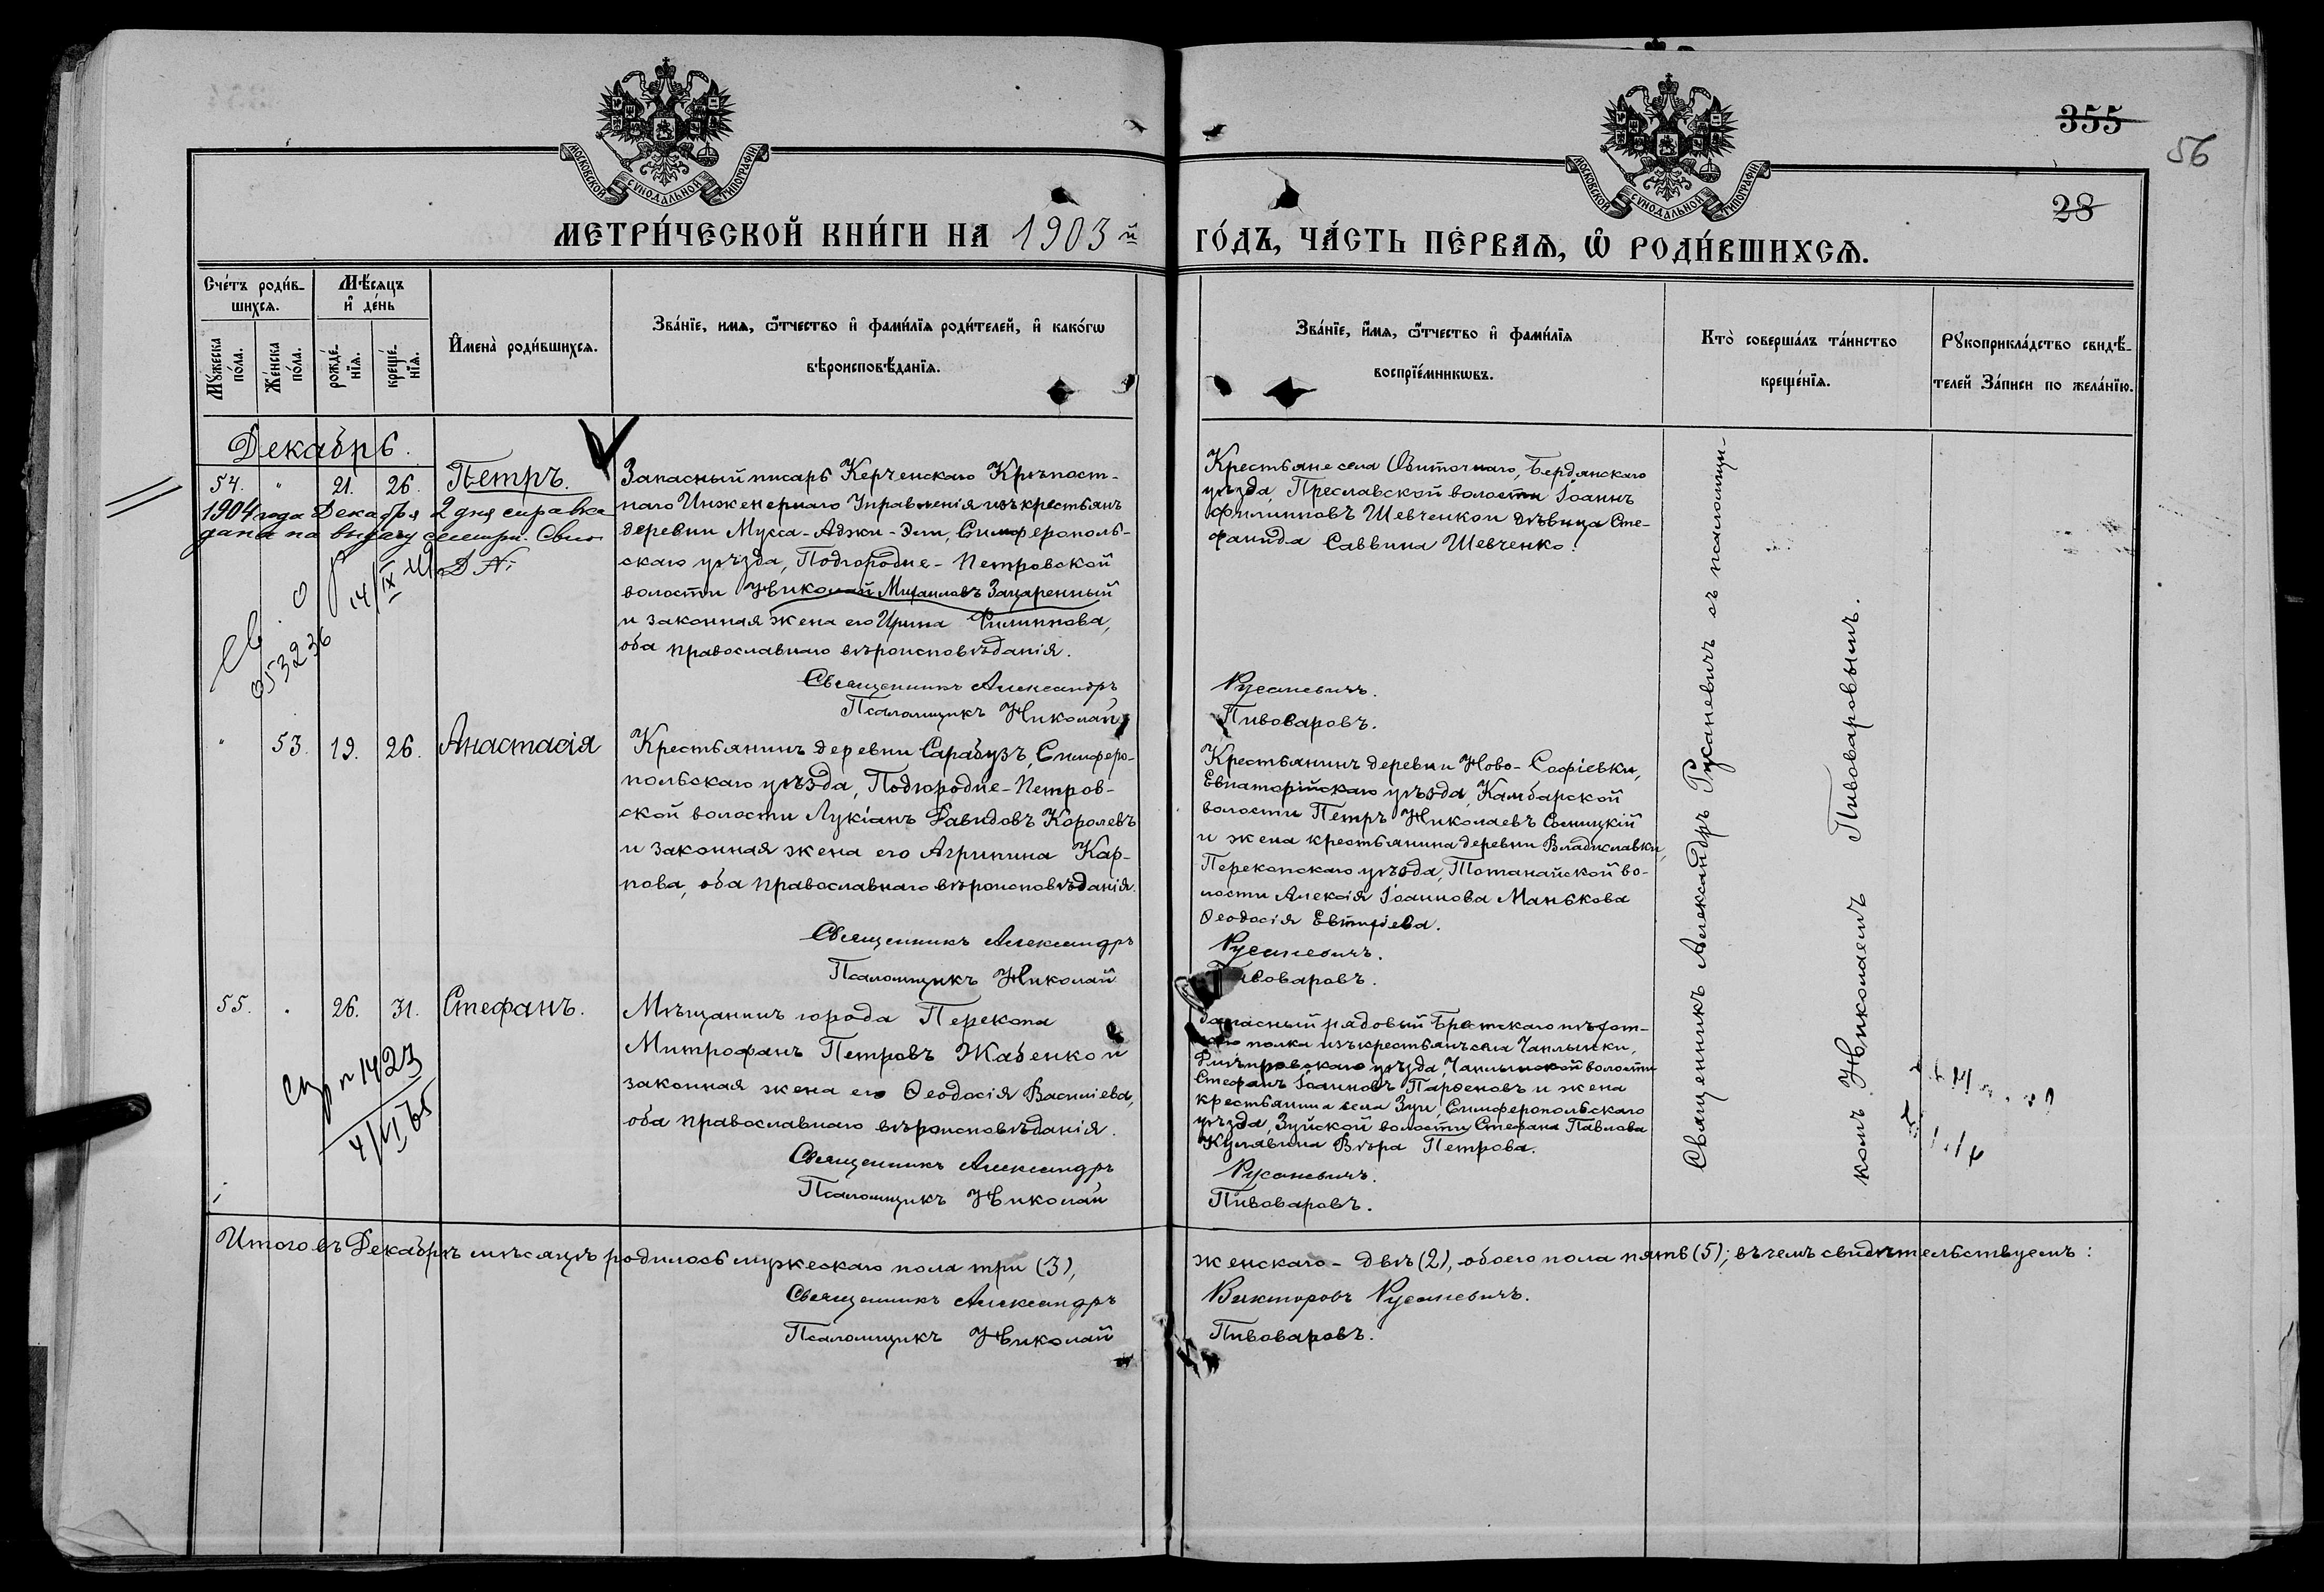 355
56
28
МОСКОВСКОЙ СѴНОДАЛЬНОЙ ТИПОГРАФІИ
МОСКОВСКОЙ СѴНОДАЛЬНОЙ ТИПОГРАФІИ
МЕТРИ́ЧЕСКОЙ КНИ́ГИ НА 1903 й
ГО́ДЪ, ЧА́СТЬ ПЕ́РВАѦ, Ѽ РОДИ́ВШИХСѦ.
Сче́тъ роди́в-
шихсѧ.
Мѣ́сѧцъ
и҆ де́нь
Мꙋ́жеска
по́ла.
Же́нска
по́ла.
рожде́-
нїѧ.
креще́-
нїѧ.
И҆мена̀ роди́вшихсѧ.
Зва́нїе, имѧ, ѻ҆́тчество и҆ фами́лїѧ роди́телей, и҆ како́гѡ
вѣроисповѣ́данїѧ.
Зва́нїе, и҆́мѧ, ѻ҆́тчество и҆ фами́лїѧ
воспрїе́мникѡвъ.
Кто̀ соверша́лъ та́инство
креще́нїѧ.
Рꙋкоприкла́дство свидѣ́-
телей За́писи по жела́нїю.
Декабрь.
54. " 21. 26. Петръ.
1904 года Декабря 2 дня справка
дана на выдачу
14/IX
053236
Запасный писарь Керченскаго Крѣпост-
наго Инженернаго Управленія изъ крестьянъ
деревни Мусса-Аджи-Эли, Симферополь-
скаго уѣзда, Подгородне-Петровской
волости Николай Михаиловъ Зацаренный
и законная жена его Ирина Филиппова,
оба православнаго вѣроисповѣданія.
Священникъ Александръ
Псаломщикъ Николай
Крестьяне села Обиточнаго, Бердянскаго
уѣзда, Преславской волости Іоаннъ
Филипповъ Шевченко и дѣвица Сте-
фанида Саввина Шевченко.
Русаневичъ.
Пивоваровъ.
" 53. 19. 26. Анастасія
Крестьянинъ деревни Сарабузъ, Симферо-
польскаго уѣзда, Подгородне-Петров-
ской волости Лукіанъ Давидовъ Королевъ
и законная жена его Агрипина Кар-
пова, оба православнаго вѣроисповѣданія.
Священникъ Александръ
Псаломщикъ Николай
Крестьянинъ деревни Ново-Софіевки,
Евпаторійскаго уѣзда, Камбарской
волости Петръ Николаевъ Сосницкій
и жена крестьянина деревни Владиславки,
Перекопскаго уѣзда, Тотанайской во-
лости Алексія Іоаннова Манькова
Ѳеодосія Евтихіева.
Русаневичъ.
Пивоваровъ.
55. " 26. 31. Стефанъ.
1423
4/VI 65
Мѣщанинъ города Перекопа
Митрофанъ Петровъ Жабенко и
законная жена его Ѳеодосія Василіева,
оба православнаго вѣроисповѣданія.
Священникъ Александръ
Псаломщикъ Николай
Запасный рядовый Брестскаго пѣхот-
наго полка изъ крестьянъ села Чаплынки,
Днѣпровскаго уѣзда, Чаплынской волости
Стефанъ Іоанновъ Парѳеновъ и жена
крестьянина села Зуи, Симферопольскаго
уѣзда, Зуйской волости Стефана Павлова
Кулявина Вѣра Петрова.
Русаневичъ.
Пивоваровъ.
Священникъ Александръ Русаневичъ съ псаломщи-
комъ Николаемъ Пивоваровымъ.
Итого въ Декабрѣ мѣсяцѣ родилось мужескаго пола три (3),
женскаго - двѣ (2), обоего пола пять (5); въ чемъ свидѣтельствуемъ:
Священникъ Александръ
Викторовъ Русаневичъ.
Псаломщикъ Николай
Пивоваровъ.